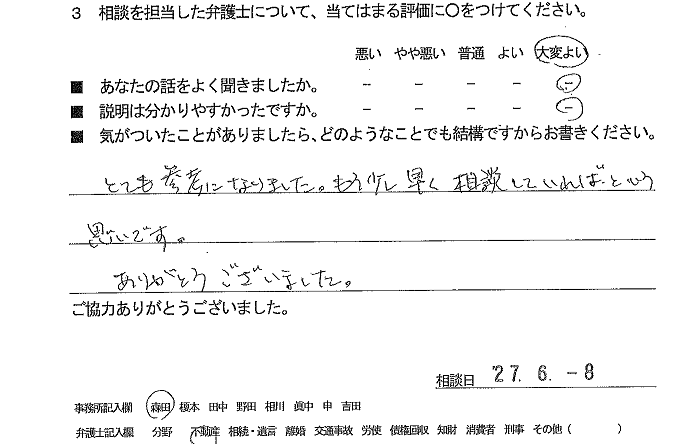 3 相談を担当した弁護士について、当てはまる評価に〇をつけてください。
悪い やや悪い 普通 よい 大変よい
■ あなたの話をよく聞きましたか。 － － － － －
■ 説明は分かりやすかったですか。 － － － － －
■ 気がついたことがありましたら、どのようなことでも結構ですからお書きください。
とても参考になりました。もう少し早く相談していればという
思いです。
ありがとうございました。
ご協力ありがとうございました。
相談日 '27. 6. -8
事務所記入欄 森田 榎本 田中 野田 相川 眞中 申 吉田
弁護士記入欄 分野 不動産 相続・遺言 離婚 交通事故 労使 債権回収 知財 消費者 刑事 その他（ ）